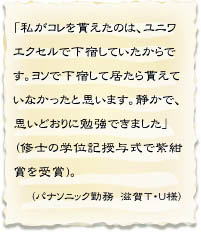 「私がコレを貰えたのは、ユニワ
エクセルで下宿していたからで
す。ヨソで下宿して居たら貰えて
いなかったと思います。静かで、
思いどおりに勉強できました」
(修士の学位記授与式で紫紺
賞を受賞)。
(パナソニック勤務　滋賀T・U様)